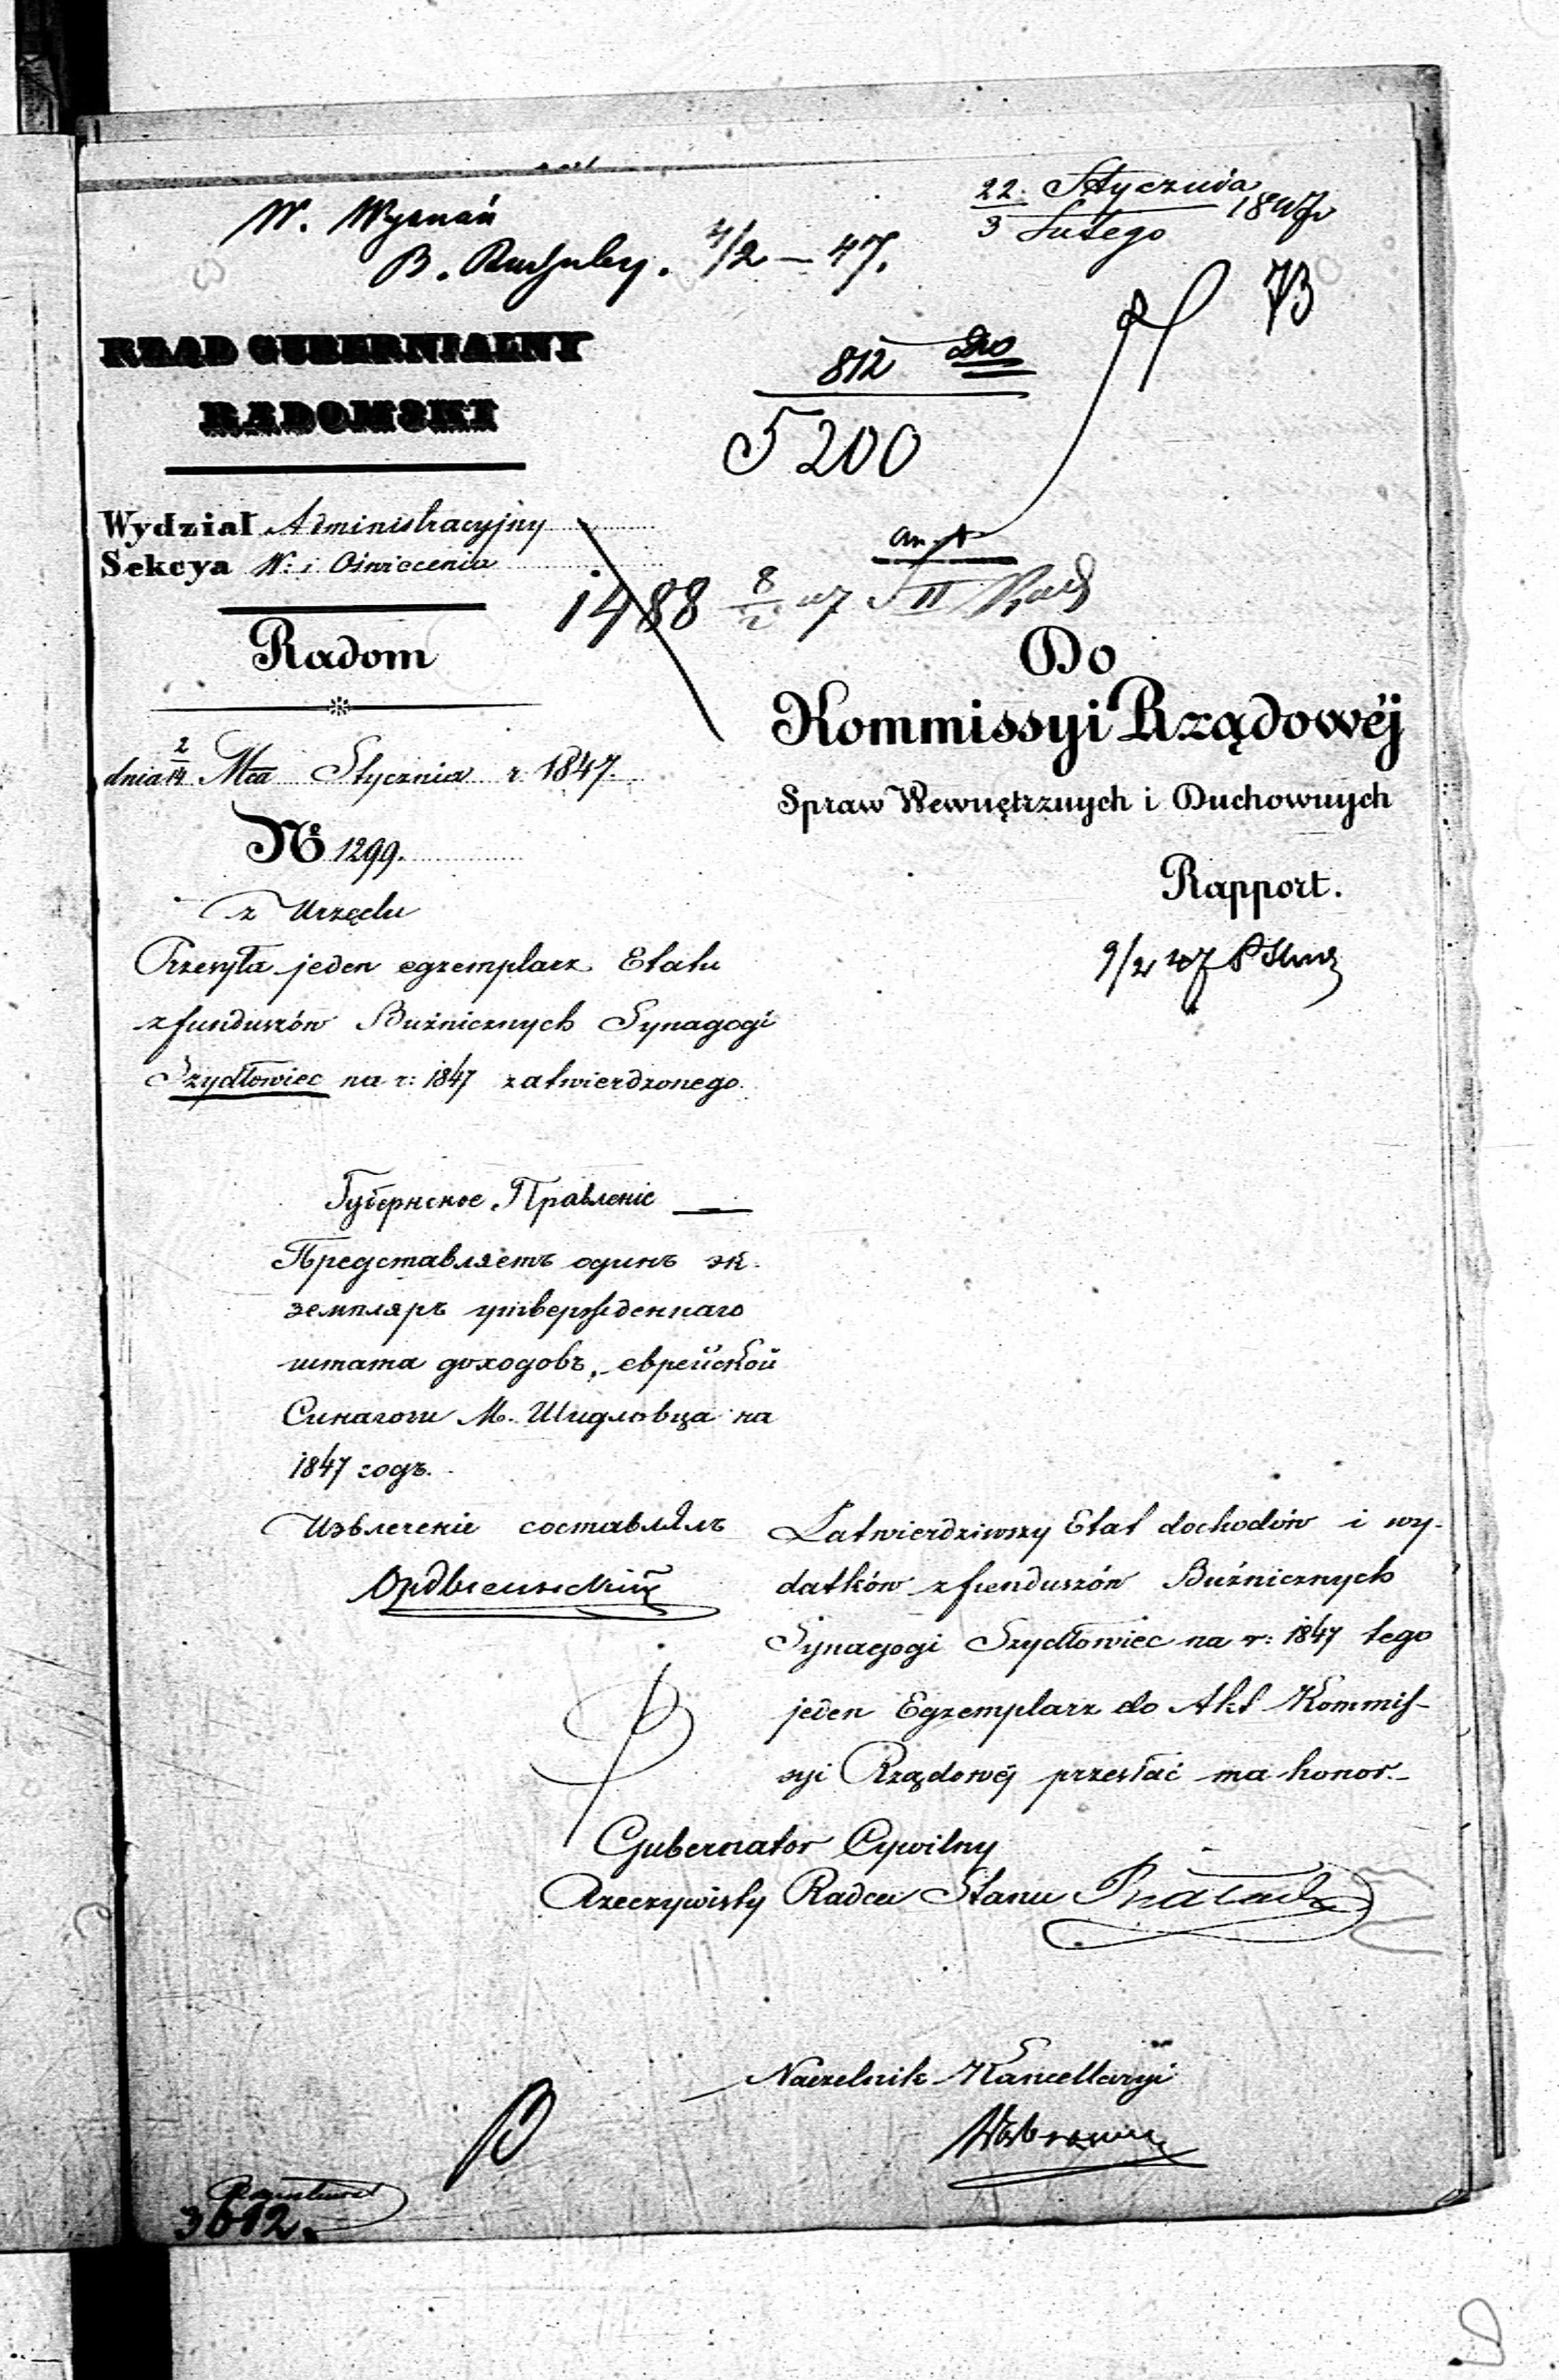 22. Stycznia
3 Lutego 1847
W. Wyznań
B. 4/2 – 47.
73
RZĄD GUBERNIALNY
RADOMSKI
812
5200
Wydział Administracyjny
Sekcya W: i Oświecenia
1488 8/2 47 II
Radom
dnia 2/14 Mca Stycznia r 1847.
№ 1299.
Do
Kommissyi Rządowéj
Spraw Wewnętrznych i Duchownych
Rapport.
9/2 47
z Urzędu
Przesyła jeden egzemplarz Etatu
z funduszów Bużnicznych Synagogi
Szydłowiec na r: 1847 zatwierdzonego.
Губернское Правленіе
Представляетъ одинъ эк-
земпляръ утвержденнаго
штата доходовъ, еврейской
Синагоги М. Шидловца на
1847 годъ.
Извлеченіе составлялъ
Zatwierdziwszy Etat dochodów i wy-
datków z funduszów Bużnicznych
Synagogi Szydłowiec na r: 1847 tego
jeden Egzemplarz do Akt Kommis-
syi Rządowéj przesłać ma honor.
Gubernator Cywilny
Rzeczywisty Radca Stanu
Naczelnik Kancellaryi
3612.